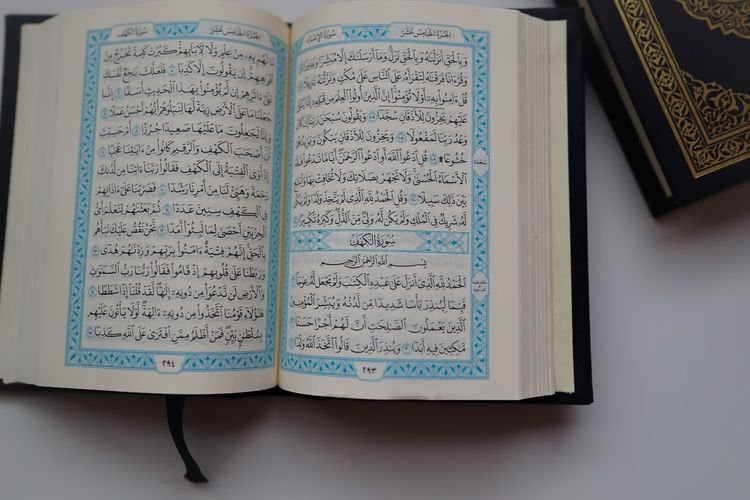 الجزء الخامس عشر
سورة الإسراء
وَبِٱلْحَقِّ أَنزَلْنَٰهُ وَبِٱلْحَقِّ نَزَلَ ۗ وَمَآ أَرْسَلْنَٰكَ إِلَّا مُبَشِّرًا وَنَذِيرًا ١٠٥
وَقُرْءَانًا فَرَقْنَٰهُ لِتَقْرَأَهُۥ عَلَى ٱلنَّاسِ عَلَىٰ مُكْثٍ وَنَزَّلْنَٰهُ تَنزِيلًا ١٠٦
قُلْ ءَامِنُوا۟ بِهِۦٓ أَوْ لَا تُؤْمِنُوٓا۟ ۚ إِنَّ ٱلَّذِينَ أُوتُوا۟ ٱلْعِلْمَ مِن قَبْلِهِۦٓ إِذَا يُتْلَىٰ
عَلَيْهِمْ يَخِرُّونَ لِلْأَذْقَانِ سُجَّدًا ١٠٧ وَيَقُولُونَ سُبْحَٰنَ رَبِّنَآ إِن كَانَ
وَعْدُ رَبِّنَا لَمَفْعُولًا ١٠٨ وَيَخِرُّونَ لِلْأَذْقَانِ يَبْكُونَ وَيَزِيدُهُمْ
خُشُوعًا ۩ ١٠٩ قُلِ ٱدْعُوا۟ ٱللَّهَ أَوِ ٱدْعُوا۟ ٱلرَّحْمَٰنَ ۖ أَيًّا مَّا تَدْعُوا۟ فَلَهُ
ٱلْأَسْمَآءُ ٱلْحُسْنَىٰ ۚ وَلَا تَجْهَرْ بِصَلَاتِكَ وَلَا تُخَافِتْ بِهَا وَٱبْتَغِ
بَيْنَ ذَٰلِكَ سَبِيلًا ١١٠ وَقُلِ ٱلْحَمْدُ لِلَّهِ ٱلَّذِى لَمْ يَتَّخِذْ وَلَدًا وَلَمْ يَكُن
لَّهُۥ شَرِيكٌ فِى ٱلْمُلْكِ وَلَمْ يَكُن لَّهُۥ وَلِىٌّ مِّنَ ٱلذُّلِّ ۖ وَكَبِّرْهُ تَكْبِيرًۢا ١١١
سورة الكهف
بِسْمِ ٱللَّهِ ٱلرَّحْمَٰنِ ٱلرَّحِيمِ
ٱلْحَمْدُ لِلَّهِ ٱلَّذِىٓ أَنزَلَ عَلَىٰ عَبْدِهِ ٱلْكِتَٰبَ وَلَمْ يَجْعَل لَّهُۥ عِوَجَا ١
قَيِّمًا لِّيُنذِرَ بَأْسًا شَدِيدًا مِّن لَّدُنْهُ وَيُبَشِّرَ ٱلْمُؤْمِنِينَ
ٱلَّذِينَ يَعْمَلُونَ ٱلصَّٰلِحَٰتِ أَنَّ لَهُمْ أَجْرًا حَسَنًا ٢
مَّٰكِثِينَ فِيهِ أَبَدًا ٣ وَيُنذِرَ ٱلَّذِينَ قَالُوا۟ ٱتَّخَذَ ٱللَّهُ وَلَدًا ٤
سجدة
٢٩٣
الجزء الخامس عشر
سورة الكهف
مَّا لَهُم بِهِۦ مِنْ عِلْمٍ وَلَا لِـَٔابَآئِهِمْ ۚ كَبُرَتْ كَلِمَةً تَخْرُجُ مِنْ
أَفْوَٰهِهِمْ ۚ إِن يَقُولُونَ إِلَّا كَذِبًا ٥ فَلَعَلَّكَ بَٰخِعٌ نَّفْسَكَ
عَلَىٰٓ ءَاثَٰرِهِمْ إِن لَّمْ يُؤْمِنُوا۟ بِهَٰذَا ٱلْحَدِيثِ أَسَفًا ٦ إِنَّا
جَعَلْنَا مَا عَلَى ٱلْأَرْضِ زِينَةً لَّهَا لِنَبْلُوَهُمْ أَيُّهُمْ أَحْسَنُ عَمَلًا ٧
وَإِنَّا لَجَٰعِلُونَ مَا عَلَيْهَا صَعِيدًا جُرُزًا ٨ أَمْ حَسِبْتَ
أَنَّ أَصْحَٰبَ ٱلْكَهْفِ وَٱلرَّقِيمِ كَانُوا۟ مِنْ ءَايَٰتِنَا عَجَبًا ٩
إِذْ أَوَى ٱلْفِتْيَةُ إِلَى ٱلْكَهْفِ فَقَالُوا۟ رَبَّنَآ ءَاتِنَا مِن لَّدُنكَ
رَحْمَةً وَهَيِّئْ لَنَا مِنْ أَمْرِنَا رَشَدًا ١٠ فَضَرَبْنَا عَلَىٰٓ ءَاذَانِهِمْ
فِى ٱلْكَهْفِ سِنِينَ عَدَدًا ١١ ثُمَّ بَعَثْنَٰهُمْ لِنَعْلَمَ أَىُّ
ٱلْحِزْبَيْنِ أَحْصَىٰ لِمَا لَبِثُوٓا۟ أَمَدًا ١٢ نَّحْنُ نَقُصُّ عَلَيْكَ نَبَأَهُم
بِٱلْحَقِّ ۚ إِنَّهُمْ فِتْيَةٌ ءَامَنُوا۟ بِرَبِّهِمْ وَزِدْنَٰهُمْ هُدًى ١٣
وَرَبَطْنَا عَلَىٰ قُلُوبِهِمْ إِذْ قَامُوا۟ فَقَالُوا۟ رَبُّنَا رَبُّ ٱلسَّمَٰوَٰتِ
وَٱلْأَرْضِ لَن نَّدْعُوَا۟ مِن دُونِهِۦٓ إِلَٰهًا ۖ لَّقَدْ قُلْنَآ إِذًا شَطَطًا ١٤
هَٰٓؤُلَآءِ قَوْمُنَا ٱتَّخَذُوا۟ مِن دُونِهِۦٓ ءَالِهَةً ۖ لَّوْلَا يَأْتُونَ عَلَيْهِم
بِسُلْطَٰنٍۭ بَيِّنٍ ۖ فَمَنْ أَظْلَمُ مِمَّنِ ٱفْتَرَىٰ عَلَى ٱللَّهِ كَذِبًا ١٥
٢٩٤